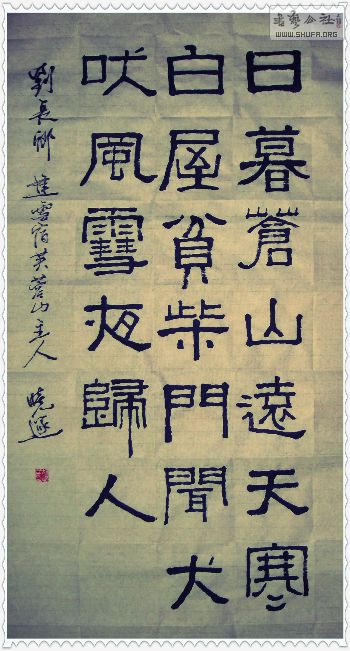 日暮蒼山遠天寒
白屋貧柴門聞犬
吠風雪夜歸人
劉長卿 逢雪宿芙蓉山主人 晓
书艺公社
WWW.SHUFA.ORG